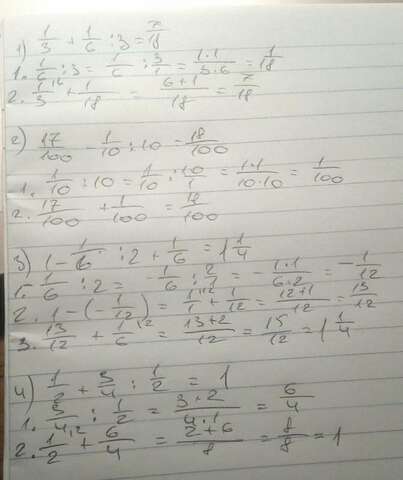 1) 1/3 + 1/6 : 3 = 7/18
1. 1/6 : 3 = 1/6 : 3/1 = 1·1/3·6 = 1/18
2. 1/3 + 1/18 = 6+1/18 = 7/18
2) 17/100 - 1/10 : 10 = 18/100
1. 1/10 : 10 = 1/10 : 10/1 = 1·1/10·10 = 1/100
2. 17/100 + 1/100 = 18/100
3) 1 - 1/6 : 2 + 1/6 = 1 1/4
1. 1/6 : 2 = -1/6 : 2/1 = -1·1/6·2 = -1/12
2. 1 - (-1/12) = 1/1 + 1/12 = 12+1/12 = 13/12
3. 13/12 + 1/6 = 13+2/12 = 15/12 = 1 1/4
4) 1/2 + 3/4 : 1/2 = 1
1. 3/4 : 1/2 = 3·2/4·1 = 6/4
2. 1/2 + 6/4 = 2+6/8 = 8/8 = 1